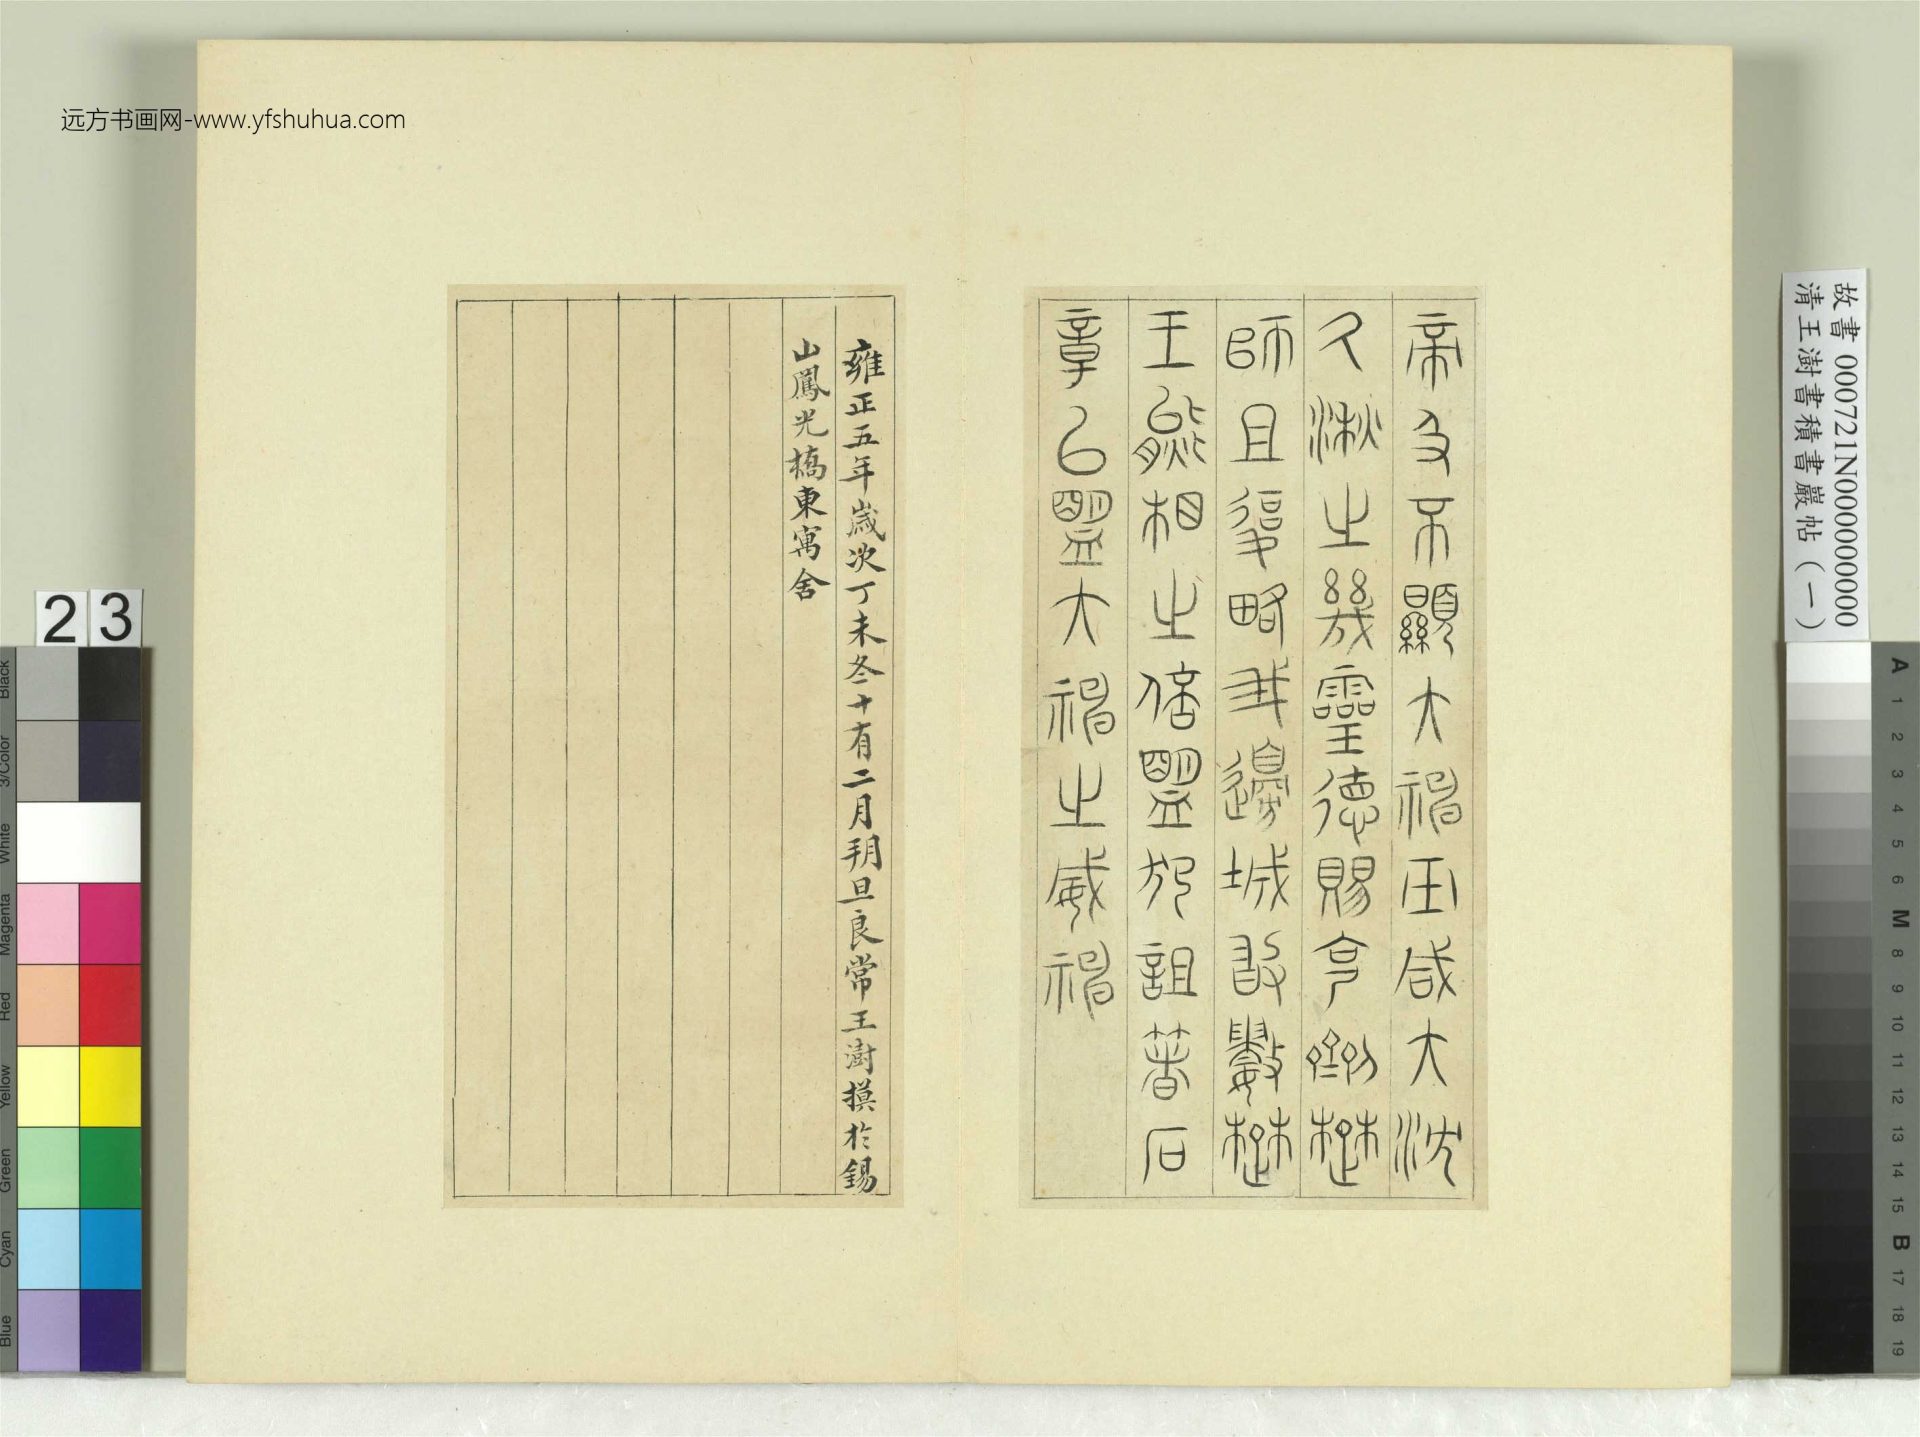 远方书画网-www.yfshuhua.com
帝及不顯大神巫咸大沈
久湫之幾靈德賜克劑楚
師且復略我邊城敢數楚
王熊相之倍盟犯詛著石
章以盟大神之威神
雍正五年歲次丁未冬十有二月朔旦良常王澍摸於錫
山鳳光橋東寓舍
故書 000721N000000000
清王澍書積書巖帖（一）
23
Black
3/Color
White
Magenta
Red
Yellow
Green
Cyan
Blue
A 1 2 3 4 5 6 M 8 9 10 11 12 13 14 15 B 17 18 19